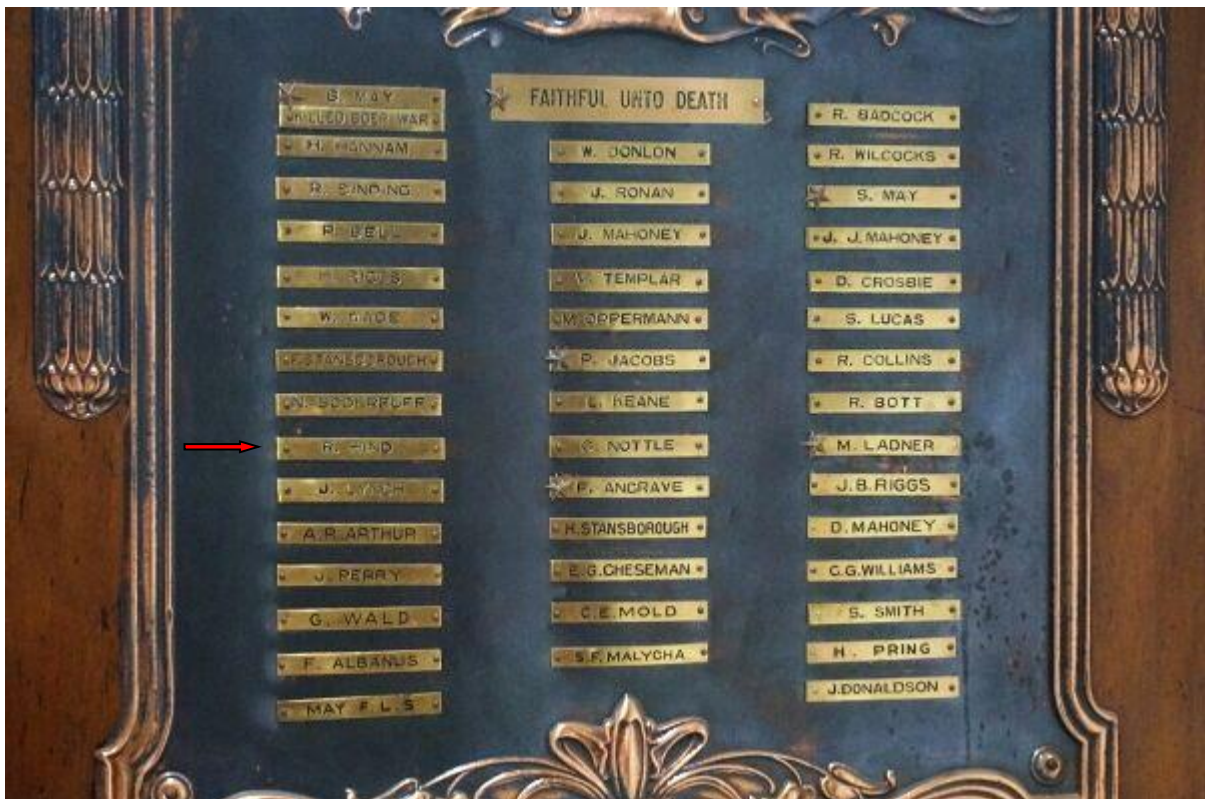 B. MAY
KILLED BOER WAR
H. HANNAM
R. BINDING
P. BELL
H. RIGGS
W. EADE
F. STANSBOROUGH
R. HIND
J. LYNCH
A. R. ARTHUR
J. PERRY
G. WALD
F. ALBANUS
MAY F. L. S
FAITHFUL UNTO DEATH
W. DONLON
J. RONAN
J. MAHONEY
TEMPLAR
M. OPPERMANN
P. JACOBS
L. KEANE
G. NOTTLE
P. ANGRAVE
H. STANSBOROUGH
E. G. CHESEMAN
C. E. MOLD
S. F. MALYCHA
R. BADCOCK
R. WILCOCKS
S. MAY
J. J. MAHONEY
D. CROSBIE
S. LUCAS
R. COLLINS
R. BOTT
M. LADNER
J. B. RIGGS
D. MAHONEY
C. G. WILLIAMS
S. SMITH
H. PRING
J. DONALDSON